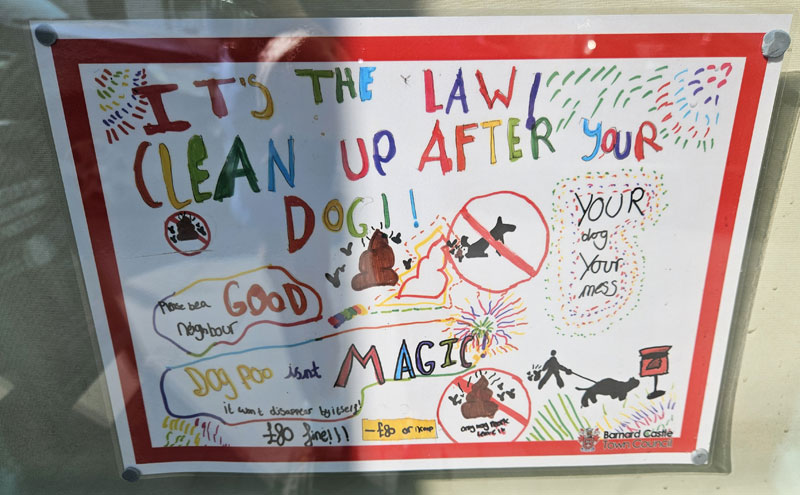 IT'S THE LAW!
CLEAN UP AFTER YOUR
DOG!!
YOUR
dog
Your
mess
Please be a GOOD
neighbour
Dog Poo isnt MAGIC!
it won't disappear by itself!
£80 fine!!!
-£80 or more
Barnard Castle
Town Council